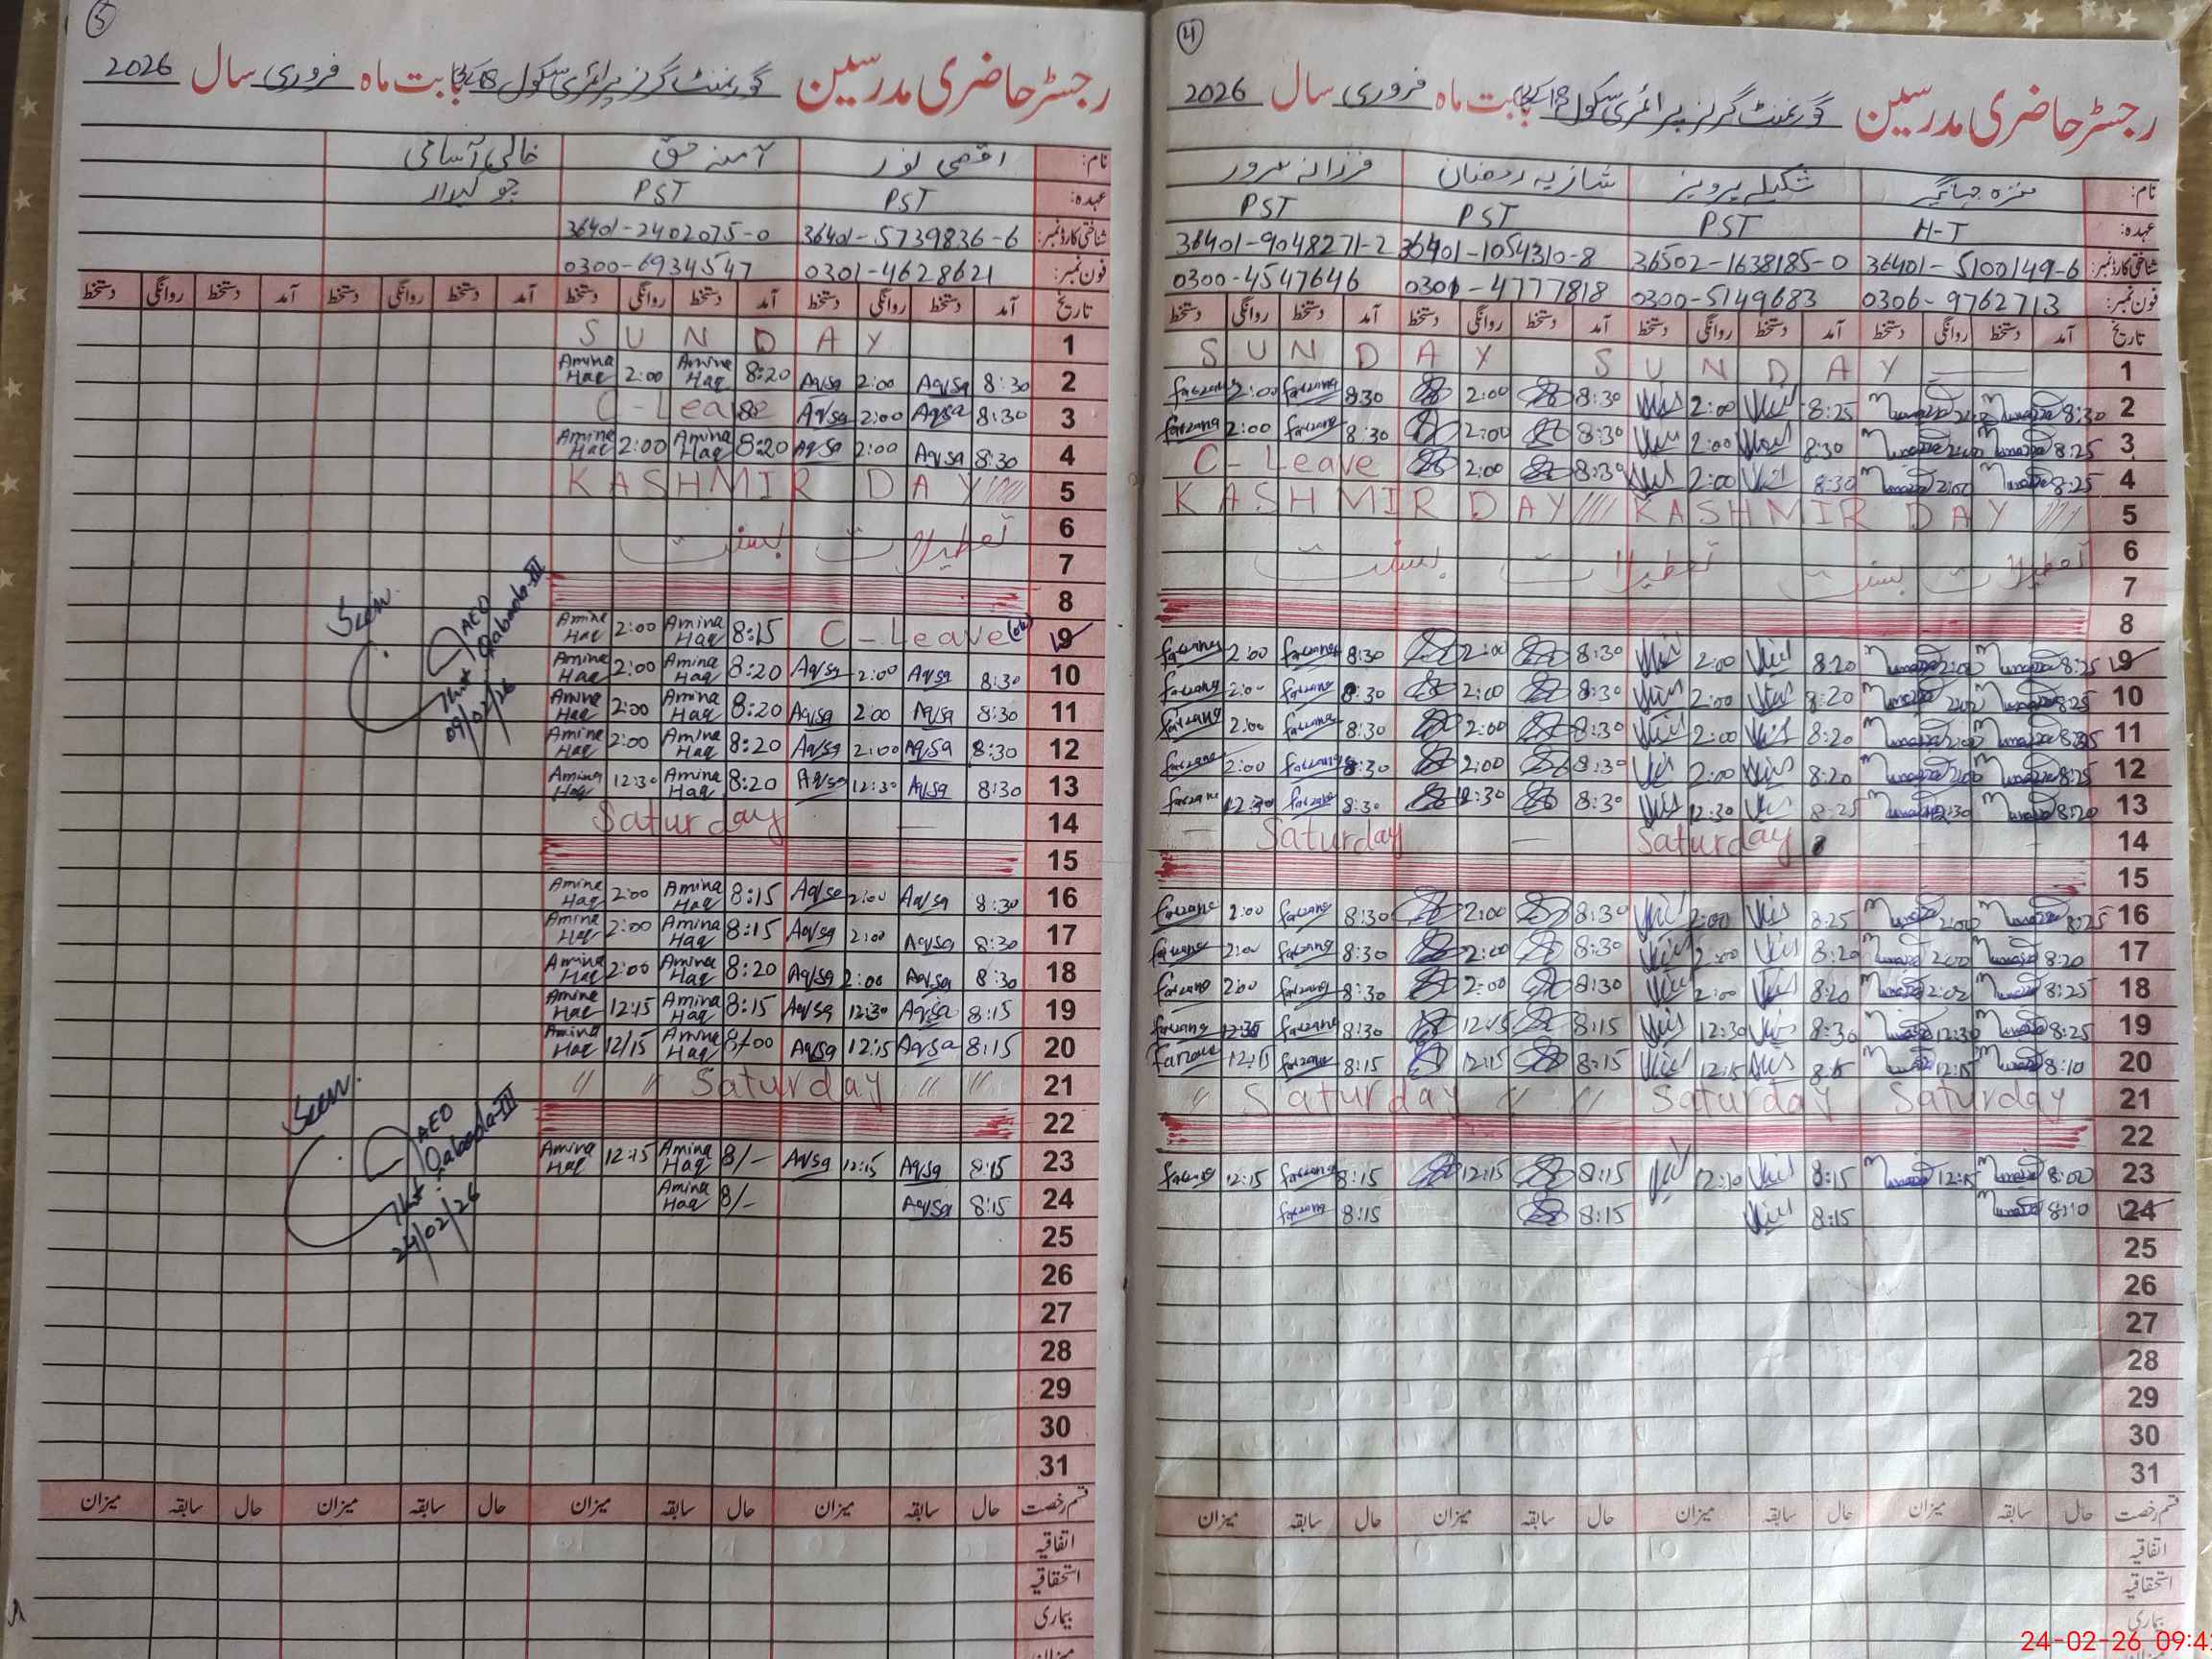 4
رجسٹر حاضری مدرسین گورنمنٹ گرلز پرائمری سکول 18 بابت ماہ فروری سال 2026
نام: منزہ جہانگیر شکیلہ پرویز شازیہ رمضان فرزانہ سرور
عہدہ: H-T PST PST PST
شناختی کارڈ نمبر: 36401-5100149-6 36502-1638185-0 36401-1054310-8 36401-9048271-2
فون نمبر: 0306-9762713 0300-5149683 0301-4777818 0300-4547646
تاریخ آمد دستخط روانگی دستخط آمد دستخط روانگی دستخط آمد دستخط روانگی دستخط آمد دستخط روانگی دستخط
1 SUNDAY SUNDAY
2 8:30 8:25 2:00 8:30 2:00 8:30 Farzana 2:00 Farzana
3 8:25 8:30 2:00 8:30 2:00 8:30 Farzana 2:00 Farzana
4 8:25 2:00 8:30 2:00 8:30 2:00 C-Leave
5 KASHMIR DAY KASHMIR DAY
6 تعطیلات بسنت تعطیلات بسنت
7
8
9 8:25 2:00 8:20 2:00 8:30 2:00 8:30 Farzana 2:00 Farzana
10 8:25 2:00 8:20 2:00 8:30 2:00 8:30 Farzana 2:00 Farzana
11 8:25 2:00 8:20 2:00 8:30 2:00 8:30 Farzana 2:00 Farzana
12 8:25 2:00 8:20 2:00 8:30 2:00 8:30 Farzana 2:00 Farzana
13 8:20 12:30 8:25 12:30 8:30 12:30 8:30 Farzana 12:30 Farzana
14 Saturday Saturday
15
16 8:25 2:00 8:25 2:00 8:30 2:00 8:30 Farzana 2:00 Farzana
17 8:20 2:00 8:20 2:00 8:30 2:00 8:30 Farzana 2:00 Farzana
18 8:25 8:20 2:00 8:30 2:00 8:30 Farzana 2:00 Farzana
19 8:25 12:30 8:30 12:30 8:15 12:15 8:30 Farzana Farzana
20 8:10 12:15 8:15 12:15 8:15 12:15 8:15 Farzana 12:15 Farzana
21 Saturday Saturday Saturday
22
23 8:00 12:15 8:15 12:10 8:15 12:15 8:15 Farzana 12:15 Farzana
24 8:10 8:15 8:15 8:15 Farzana
25
26
27
28
29
30
31
قسم رخصت حال سابقہ میزان حال سابقہ میزان حال سابقہ میزان حال سابقہ میزان
اتفاقیہ
استحقاقیہ
بیماری
5
رجسٹر حاضری مدرسین گورنمنٹ گرلز پرائمری سکول 18 بابت ماہ فروری سال 2026
نام: اقصیٰ نور آمنہ حق خالی آسامی
عہدہ: PST PST چوکیدار
شناختی کارڈ نمبر: 36401-5739836-6 36401-2402075-0
فون نمبر: 0301-4628621 0300-6934547
تاریخ آمد دستخط روانگی دستخط آمد دستخط روانگی دستخط آمد دستخط روانگی دستخط آمد دستخط روانگی دستخط
1 SUNDAY
2 8:30 Aqsa 2:00 Aqsa 8:20 Amina Haq 2:00 Amina Haq
3 8:30 Aqsa 2:00 Aqsa C-Leave
4 8:30 Aqsa 2:00 Aqsa 8:20 Amina Haq 2:00 Amina Haq
5 KASHMIR DAY
6 تعطیلات بسنت
7
8
9 C-Leave 8:15 Amina Haq 2:00 Amina Haq
10 8:30 Aqsa 2:00 Aqsa 8:20 Amina Haq 2:00 Amina Haq
11 8:30 Aqsa 2:00 Aqsa 8:20 Amina Haq 2:00 Amina Haq
12 8:30 Aqsa 2:00 Aqsa 8:20 Amina Haq 2:00 Amina Haq
13 8:30 Aqsa 12:30 Aqsa 8:20 Amina Haq 12:30 Amina Haq
14 Saturday
15
16 8:30 Aqsa 2:00 Aqsa 8:15 Amina Haq 2:00 Amina Haq
17 8:30 Aqsa 2:00 Aqsa 8:15 Amina Haq 2:00 Amina Haq
18 8:30 Aqsa 2:00 Aqsa 8:20 Amina Haq 2:00 Amina Haq
19 8:15 Aqsa 12:30 Aqsa 8:15 Amina Haq 12:15 Amina Haq
20 8:15 Aqsa 12:15 Aqsa 8/00 Amina Haq 12/15 Amina Haq
21 Saturday
22
23 8:15 Aqsa 12:15 Aqsa 8/- Amina Haq 12:15 Amina Haq
24 8:15 Aqsa 8/- Amina Haq
25
26
27
28
29
30
31
قسم رخصت حال سابقہ میزان حال سابقہ میزان حال سابقہ میزان حال سابقہ میزان
اتفاقیہ
استحقاقیہ
بیماری
Seen.
AEO
Qaboola-III
09/02/26
Seen.
AEO
Qaboola-III
24/02/26
24-02-26 09:4